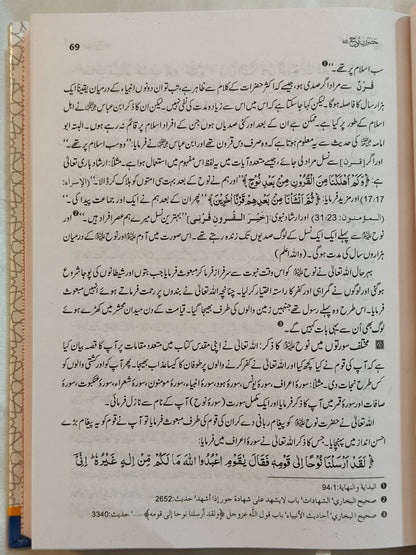 حضرت نوح علیہ السلام
69
سب اسلام پر تھے۔“ ❶
قَرْنٌ سے مراد اگر صدی ہو، جیسے کہ اکثر حضرات کے کلام سے ظاہر ہے، تب تو ان دونوں انبیاء کے درمیان یقیناً ایک
ہزار سال کا فاصلہ ہوگا۔ لیکن کہا جا سکتا ہے کہ اس میں اس سے زیادہ مدت کی نفی نہیں۔ لیکن ان کا ذکر ابن عباس رضی اللہ عنہما نے اہل
اسلام کے طور پر کیا ہے۔ ممکن ہے ان کے بعد اور کئی صدیاں ہوں جن کے افراد اسلام پر قائم نہ رہے ہوں۔ البتہ ابو
امامہ رضی اللہ عنہ کی حدیث سے یہ معلوم ہوتا ہے کہ وہ صرف دس قرون تھے اور ابن عباس رضی اللہ عنہما نے فرمایا: ”وہ سب اسلام پر تھے۔“
اور اگر [قرن] سے نسل مراد لی جائے، جیسے متعدد آیات میں یہ لفظ اس مفہوم میں استعمال ہوا ہے۔ مثلاً: ارشاد باری تعالیٰ
ہے: ﴿وَكَمْ اَهْلَكْنَا مِنَ الْقُرُوْنِ مِنْۢ بَعْدِ نُوْحٍ﴾ ”اور ہم نے نوح کے بعد بہت سی امتوں کو ہلاک کر ڈالا۔“ (الإسراء:
17:17) اور مزید فرمایا: ﴿ثُمَّ اَنْشَاْنَا مِنْۢ بَعْدِهِمْ قَرْنًا اٰخَرِيْنَ﴾ ”پھر ان کے بعد ہم نے ایک اور جماعت پیدا کی۔“
(المؤمنون: 31,23) اور ارشاد نبوی: (خَيْرُ الْقُرُونِ قَرْنِي) ”بہترین نسل میرے ہم عصر افراد ہیں“ ❷ اور
نوح علیہ السلام سے پہلے ایک ایک نسل کے لوگ صدیوں تک زندہ رہتے تھے۔ اس صورت میں آدم علیہ السلام اور نوح علیہ السلام کے درمیان
ہزاروں سال کی مدت ہوگی۔ (واللہ اعلم)
بہرحال اللہ تعالیٰ نے نوح علیہ السلام کو اس وقت نبوت سے سرفراز کر کے مبعوث فرمایا جب بتوں اور شیطانوں کی پوجا شروع
ہوگئی اور لوگوں نے گمراہی اور کفر کا راستہ اختیار کر لیا۔ چنانچہ اللہ تعالیٰ نے بندوں پر رحمت فرماتے ہوئے انہیں مبعوث
فرمایا۔ اس طرح وہ پہلے رسول تھے جنہیں زمین والوں کی طرف بھیجا گیا۔ قیامت کے دن میدان محشر میں کھڑے ہوئے
لوگ بھی اُن سے یہی بات کہیں گے۔ ❸
مختلف سورتوں میں نوح علیہ السلام کا ذکر: اللہ تعالیٰ نے اپنی مقدس کتاب میں متعدد مقامات پر آپ کا قصہ بیان کیا
ہے کہ آپ کی قوم نے کیا کچھ کیا اور اللہ تعالیٰ نے کفر کرنے والوں پر طوفان کا کیسا عذاب بھیجا۔ پھر آپ کو اور کشتی والوں کو
کس طرح نجات دی۔ مثلاً: سورۂ اعراف، سورۂ یونس، سورۂ ہود، سورۂ انبیاء، سورۂ مومنون، سورۂ شعراء، سورۂ عنکبوت، سورۂ
صافات اور سورۂ قمر میں آپ کا ذکر فرمایا اور ایک مکمل سورت (سورۂ نوح) آپ کے نام سے نازل فرمائی۔
اللہ تعالیٰ نے حضرت نوح علیہ السلام کو پیغام ربانی دے کر ان کی قوم کی طرف مبعوث فرمایا تو آپ نے قوم کو یہ پیغام بڑے
احسن انداز میں پہنچایا۔ جس کا ذکر اللہ تعالیٰ نے سورۂ اعراف میں فرمایا:
﴿لَقَدْ اَرْسَلْنَا نُوْحًا اِلٰى قَوْمِهٖ فَقَالَ يٰقَوْمِ اعْبُدُوا اللّٰهَ مَا لَكُمْ مِّنْ اِلٰهٍ غَيْرُهٗ ؕ اِنِّيْٓ
❶ البداية والنهاية: 94/1
❷ صحيح البخاري، الشهادات، باب لا يشهد على شهادة جور إذا أشهد، حديث: 2652
❸ صحيح البخاري، أحاديث الأنبياء، باب قول الله عزوجل ﴿ولقد أرسلنا نوحا إلى قومه﴾......، حديث: 3340